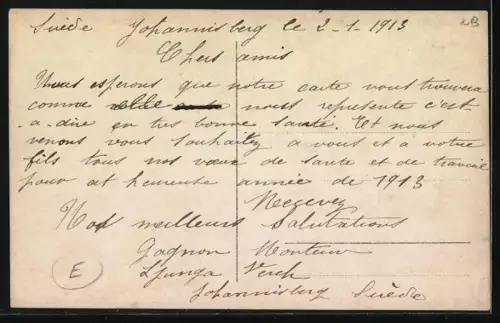 Suède Johannisberg le 2-1-1913
2B
Chers amis
Nous esperons que notre carte vous trouvera
comme elle nous represente c'est-
-a-dire en tres bonne santé. Et nous
venons vous souhaitez a vous et a votre
fils tous nos vœux de sante et de travail
pour et heureuse année de 1913
Recevez
Nos meilleurs Salutations
Gagnon Monteur
Ljunga Verk
Johannisberg Suède
E